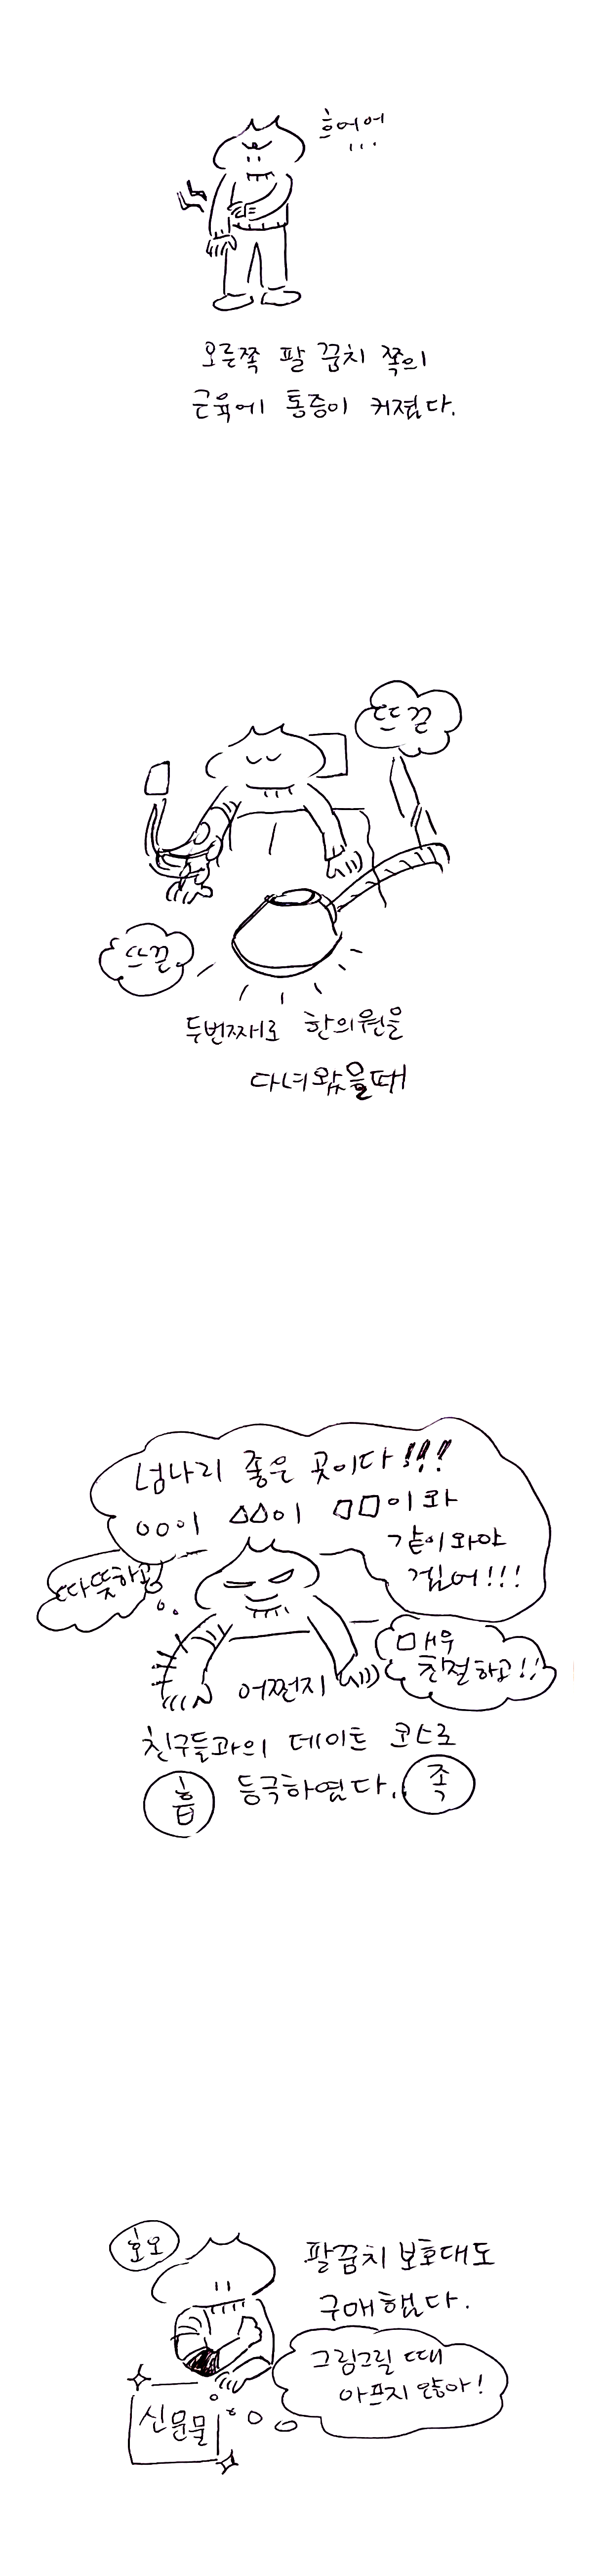 흐어어
...
오른쪽 팔 꿈치 쪽의
근육에 통증이 커졌다.
뜨끈
뜨끈
두번째로 한의원을
다녀왔을때
넘나리 좋은 곳이다!!!
○○이 △△이 □□이와
같이와야
겠어!!!
따뜻하고
매우
친절하고!!
어쩐지
친구들과의 데이트 코스로
등극하였다.
흡
족
호오
팔꿈치 보호대도
구매했다.
그림그릴 때
아프지 않아!
신문물